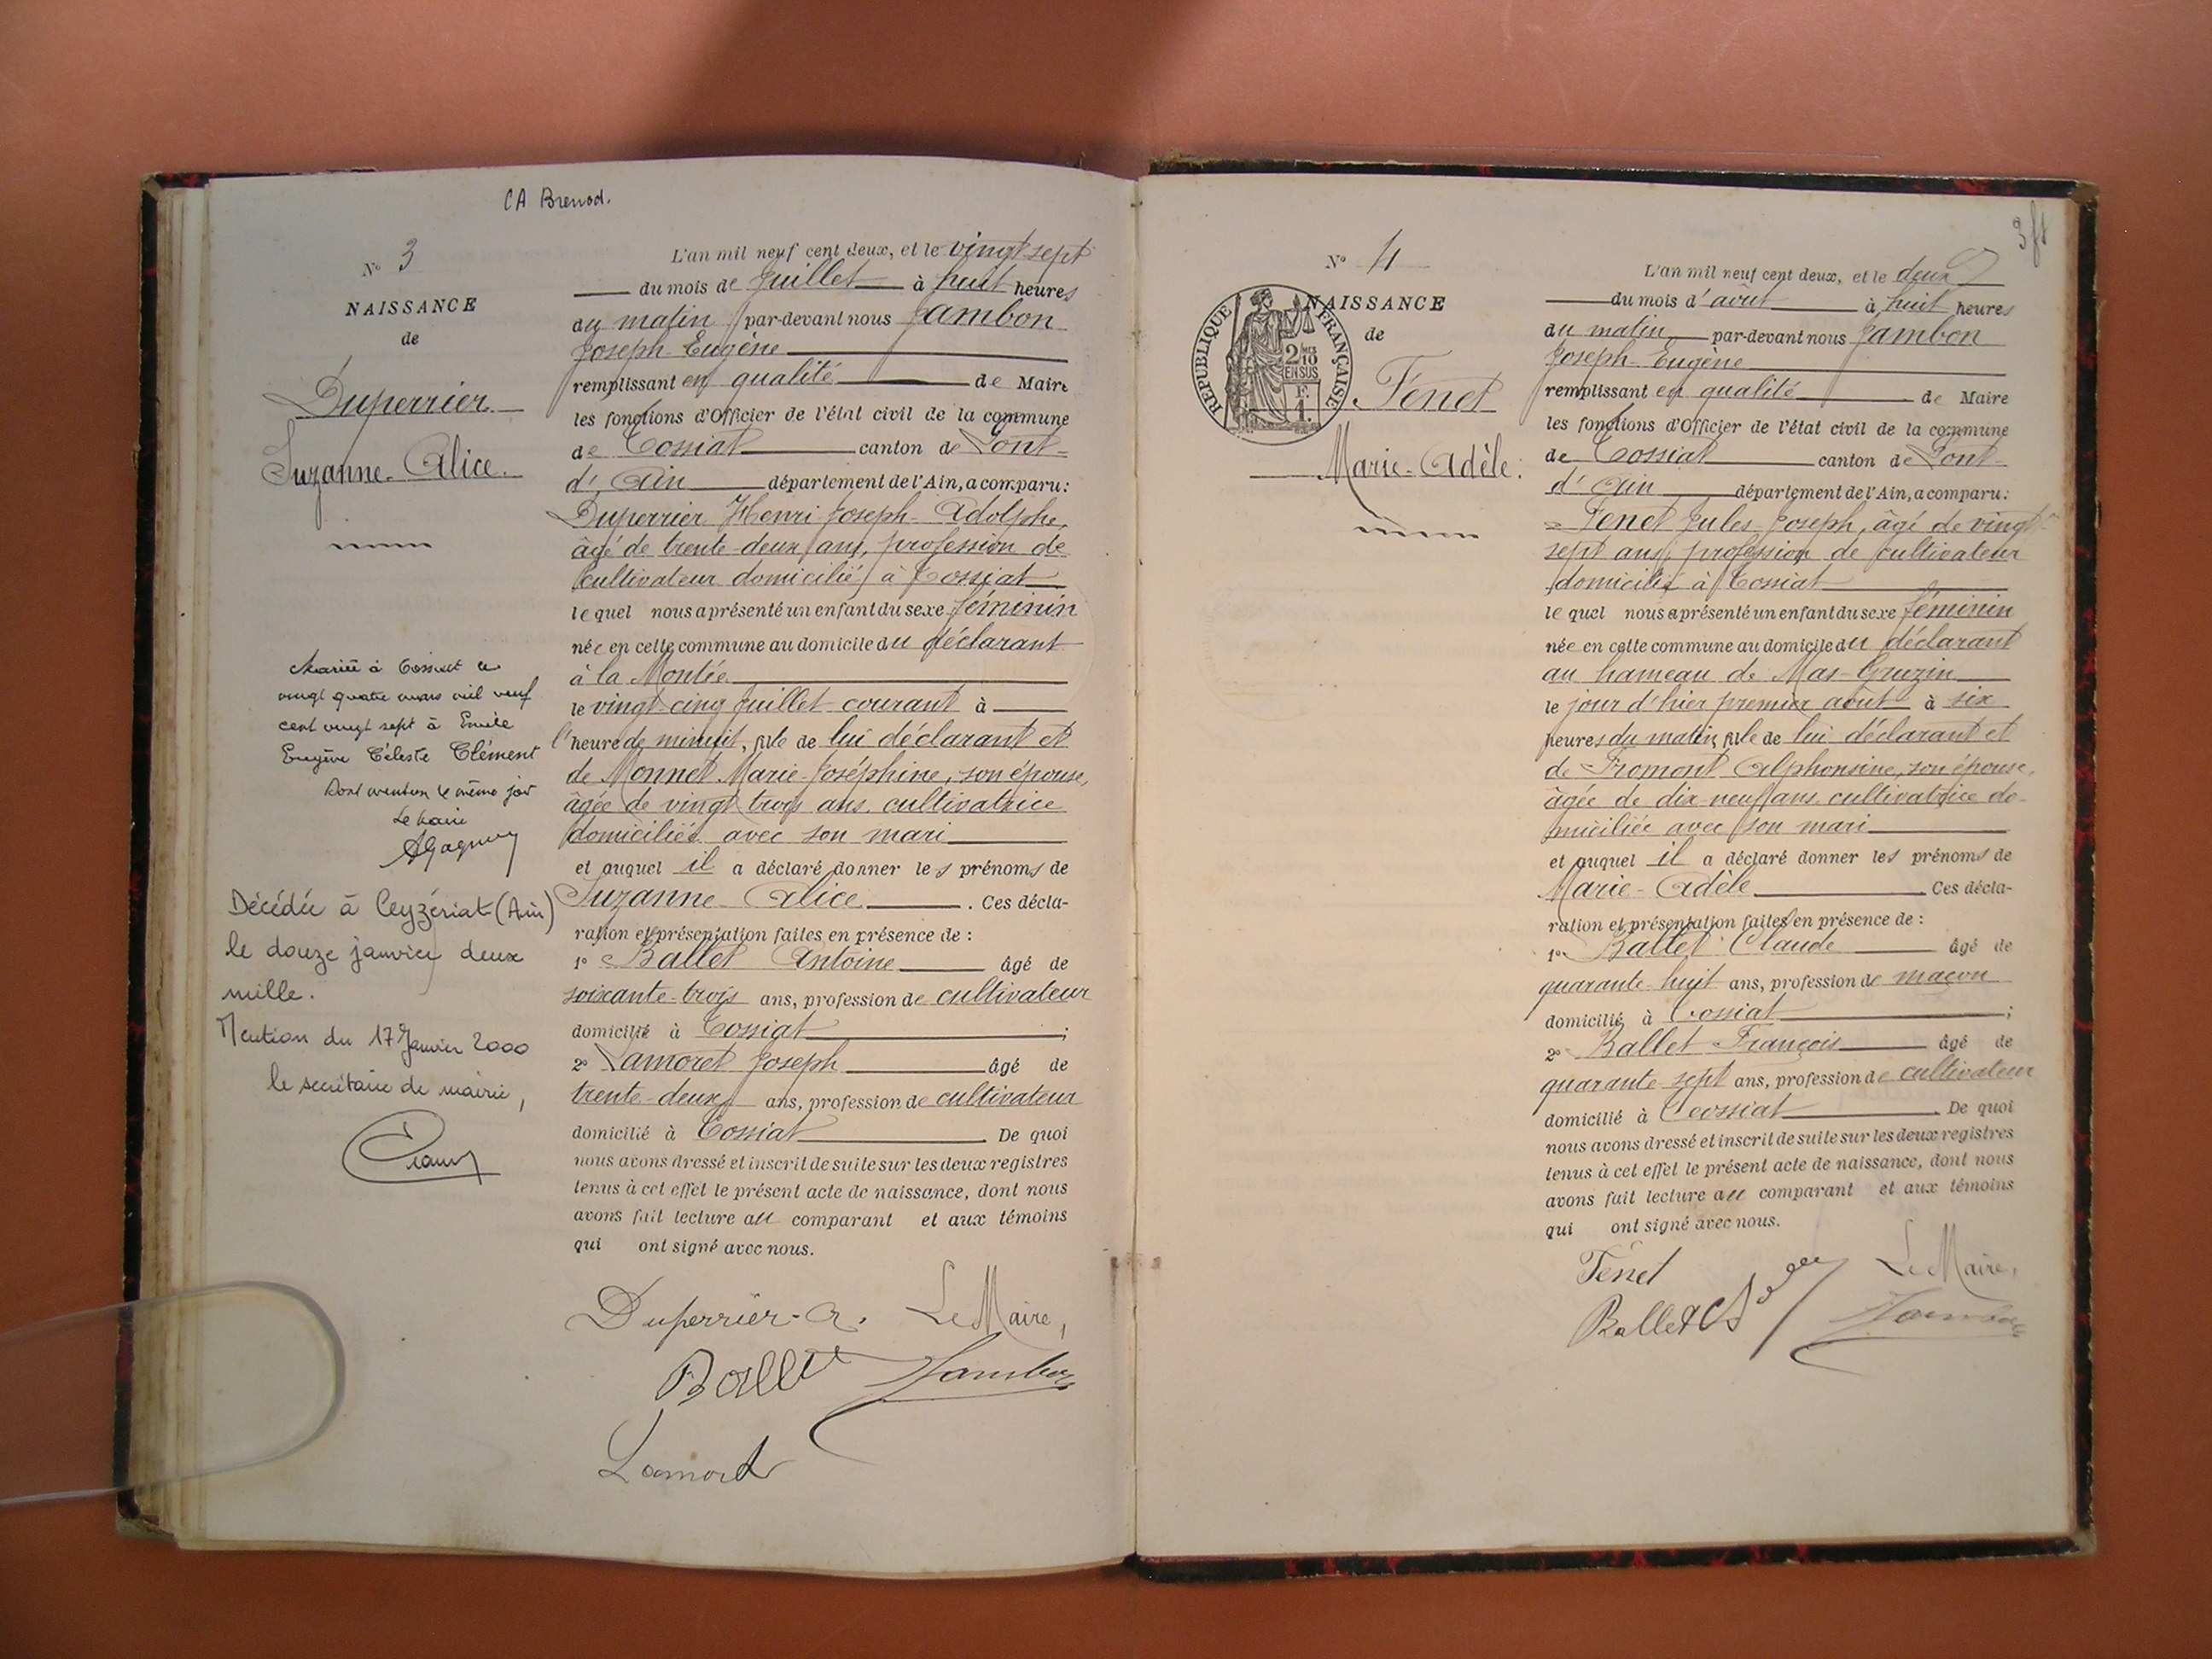 CA Brenod.
N° 3
NAISSANCE
de
Duperrier
Suzanne-Alice.
Mariée à Tossiat le
vingt quatre mars mil neuf
cent vingt sept à Emile
Eugène Céleste Clément
Dont mention le même jour
Le Maire
Décédée à Ceyzériat (Ain)
le douze janvier deux
mille.
Mention du 17 Janvier 2000
le secrétaire de mairie,
L'an mil neuf cent deux, et le vingt sept
du mois de Juillet à huit heures
du matin par-devant nous Jambon
Joseph-Eugène
remplissant en qualité de Maire
les fonctions d'Officier de l'état civil de la commune
de Tossiat canton de Pont-
d'Ain département de l'Ain, a comparu:
Duperrier Henri Joseph-Adolphe,
âgé de trente-deux ans, profession de
cultivateur domicilié à Tossiat
lequel nous a présenté un enfant du sexe féminin
née en cette commune au domicile du déclarant
à la Montée
le vingt-cinq juillet courant à
l'heure de minuit, fille de lui déclarant et
de Monnet Marie-Joséphine, son épouse,
âgée de vingt trois ans, cultivatrice
domiciliée avec son mari
et auquel il a déclaré donner les prénoms de
Suzanne-Alice. Ces décla-
ration et présentation faites en présence de :
1° Ballet Antoine âgé de
soixante-trois ans, profession de cultivateur
domicilié à Tossiat ;
2° Lamoret Joseph âgé de
trente-deux ans, profession de cultivateur
domicilié à Tossiat. De quoi
nous avons dressé et inscrit de suite sur les deux registres
tenus à cet effet le présent acte de naissance, dont nous
avons fait lecture au comparant et aux témoins
qui ont signé avec nous.
Duperrier-A. Le Maire,
Ballet Jambon
Lamoret
N° 4
NAISSANCE
de
RÉPUBLIQUE FRANÇAISE
2/10 EN SUS
Tenet
Marie-Adèle.
L'an mil neuf cent deux, et le deux
du mois d'août à huit heures
du matin par-devant nous Jambon
Joseph-Eugène
remplissant en qualité de Maire
les fonctions d'Officier de l'état civil de la commune
de Tossiat canton de Pont-
d'Ain département de l'Ain, a comparu:
Tenet Jules-Joseph, âgé de vingt-
sept ans, profession de cultivateur
domicilié à Tossiat
lequel nous a présenté un enfant du sexe féminin
née en cette commune au domicile du déclarant
au hameau de Mas-Gruzin
le jour d'hier premier août à six
heures du matin, fille de lui déclarant et
de Fromont Alphonsine, son épouse,
âgée de dix-neuf ans cultivatrice do-
miciliée avec son mari
et auquel il a déclaré donner les prénoms de
Marie-Adèle. Ces décla-
ration et présentation faites en présence de :
1° Ballet Claude âgé de
quarante-huit ans, profession de maçon
domicilié à Tossiat ;
2° Ballet François âgé de
quarante-sept ans, profession de cultivateur
domicilié à Tossiat. De quoi
nous avons dressé et inscrit de suite sur les deux registres
tenus à cet effet le présent acte de naissance, dont nous
avons fait lecture au comparant et aux témoins
qui ont signé avec nous.
Tenet Le Maire,
Ballet Jambon